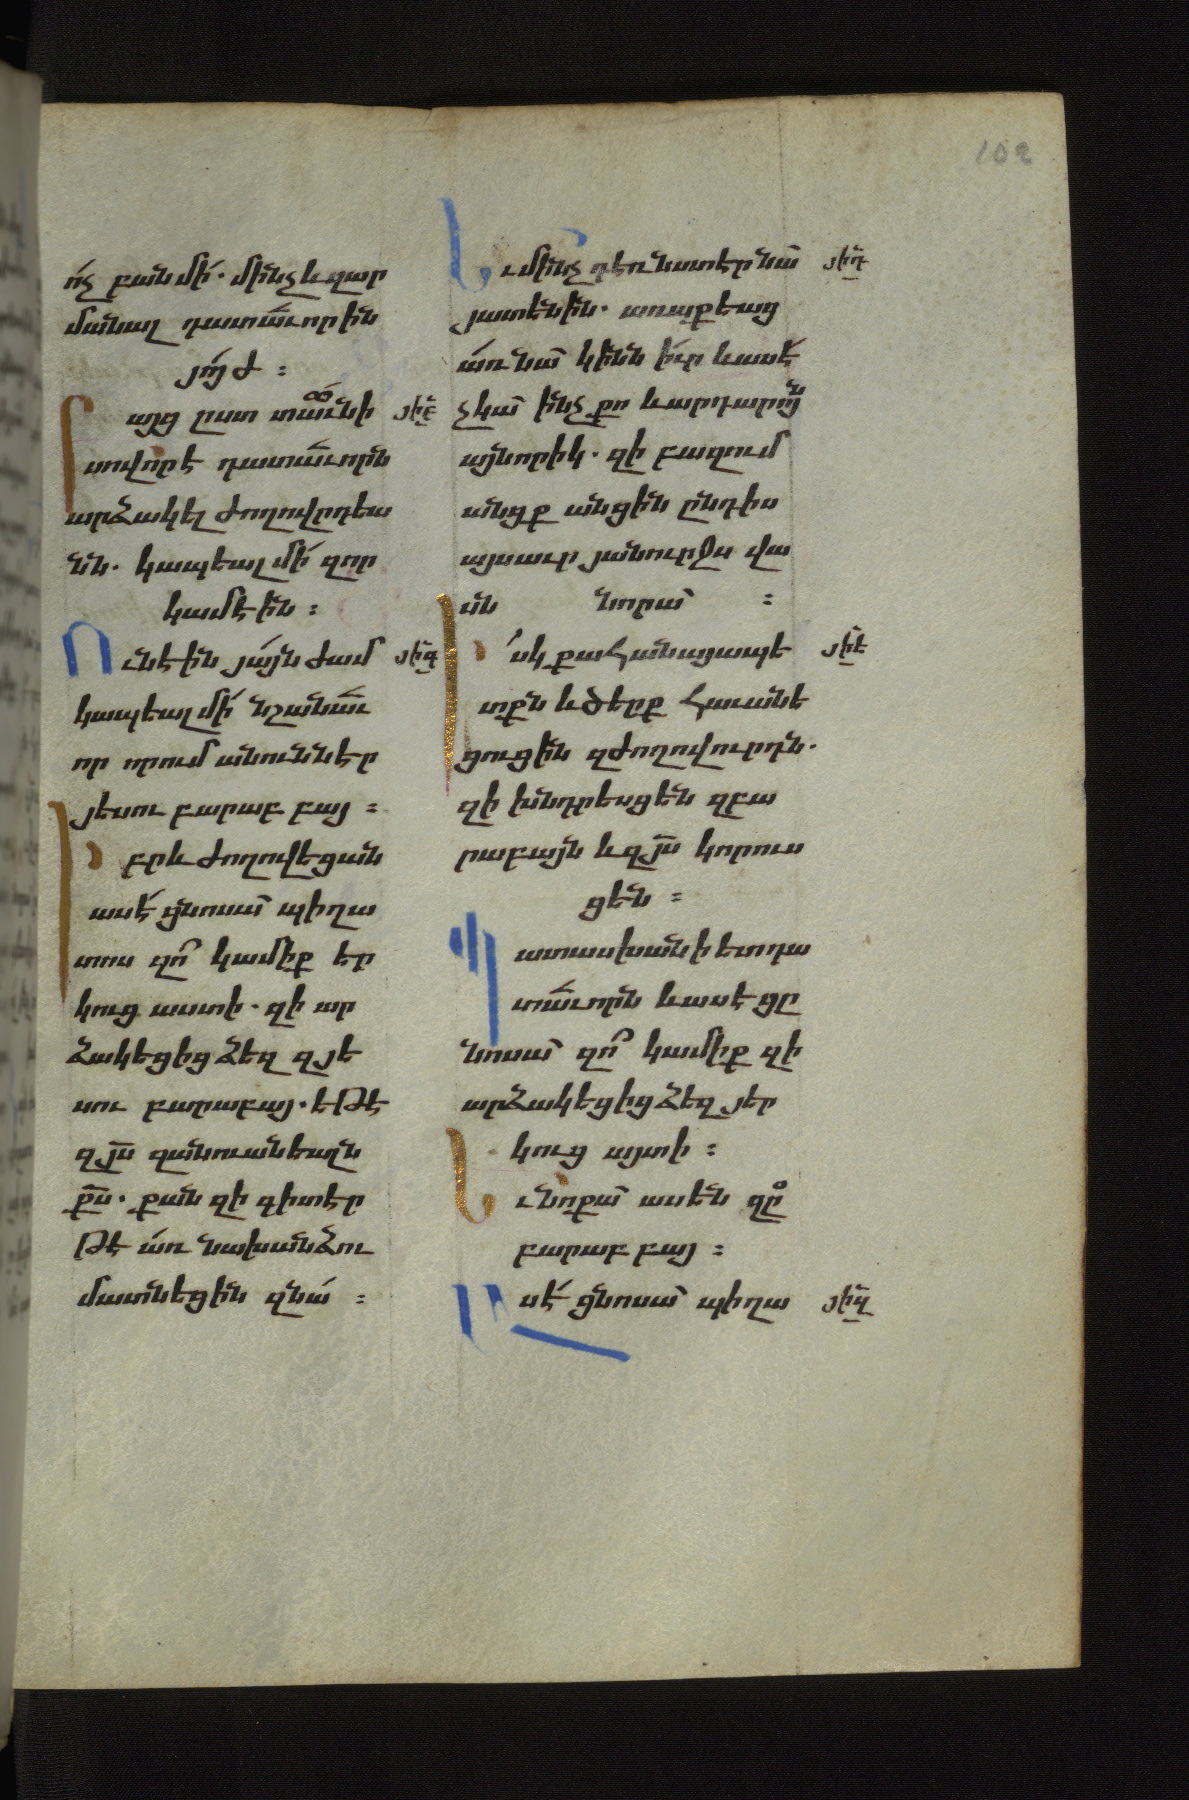 102
ո՛չ բանմի՛. մինչևզար
մանալ դատաւորին
յո՛յժ :
այց ըստ տաւնի
սովորէ դատաւորն
արձակել ժողովրդեա
նն. կապեալմի՛ զոր
կամէին :
Ունէին յայնժամ
կապեալմի՛ նշանաւ
որ որումանուննէր
յեսու բարաբբայ :
Իբրևժողովեցան
ասէ՛ ցնոսա՝ պիղա
տոս զո՞ կամիք եր
կուց աստի. զի ար
ձակեցիցձեզ զյե
սու բարաբայ. եթէ
զյս զանուանեալն
քս. քանզի գիտէր
թէ առ նախանձու
մատնեցին զնա՛ :
ԵՒմինչ դեռնստէրնա՝
յատենին. առաքեաց
առնա՝ կինն իւր ևասէ՛
չկա՛ ինչ քո ևարդարոյն
այնորիկ. զի բազում
անցք անցին ընդիս
այսաւր յանուրջս վա
սն նորա՝ :
Իսկ քահանայապե
տքն ևծերք հաւանե
ցուցին զժողովուրդն.
զի խնդրեսցեն զբա
րաբայն ևզյս կորուս
ցեն :
Պատասխանիետդա
տաւորն ևասէ ցը
նոսա՝ զո՞ կամիք զի
արձակեցիցձեզ յեր
կուց այտի :
ԵՒնոքա՝ ասեն զը
բարաբբայ :
Ասէ՛ ցնոսա՝ պիղա
յիբ
յիգ
յիդ
յիե
յիզ